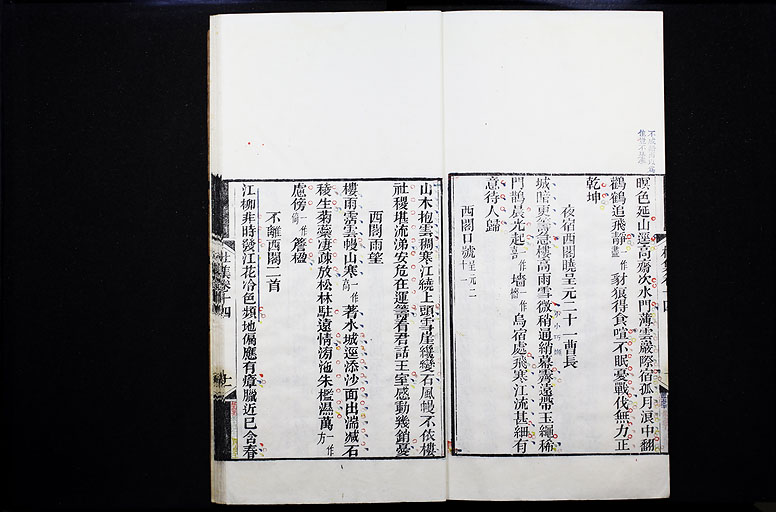 暝色延山逕高齋次水門薄雲巖際宿孤月浪中翻
鸛鶴追飛靜一作盡豺狼得食喧不眠憂戰伐無力正
乾坤
夜宿西閣曉呈元二十一曹長
城暗更籌急樓高雨雪微稍通綃幕霽遠帶玉繩稀
門鵲晨光起一作牆烏宿處飛寒江流甚細有
意待人歸
西閣口號呈元二十一
山木抱雲稠寒江繞上頭雪崖纔變石風幔不依樓
社稷堪流涕安危在運籌看君話王室感動幾銷憂
西閣雨望
樓雨霑雲幔山寒一作著水城逕添沙面出湍減石
稜生菊蘂凄疎放松林駐遠情滂沲朱檻濕萬一作方
慮傍一作倚簷楹
不離西閣二首
江柳非時發江花冷色頻地偏應有瘴臘近已含春
杜集卷十四